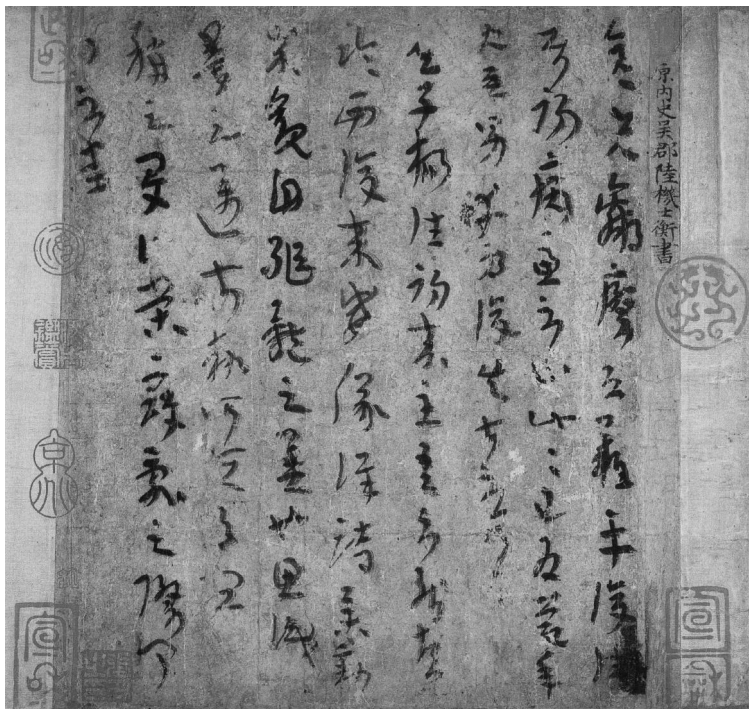 原內史吳郡陸機士衡書
彥先羸瘵恐難平復往
屬初病慮不止此此已為慶承
使唯男幸為復失前憂耳
吳子楊往初來主吾不能盡
臨西復來威儀詳跱舉動
成觀自軀體之美也思識
量之邁前勢所恒有宜
稱之夏伯榮寇亂之際聞
問不悉
宣和
宣和